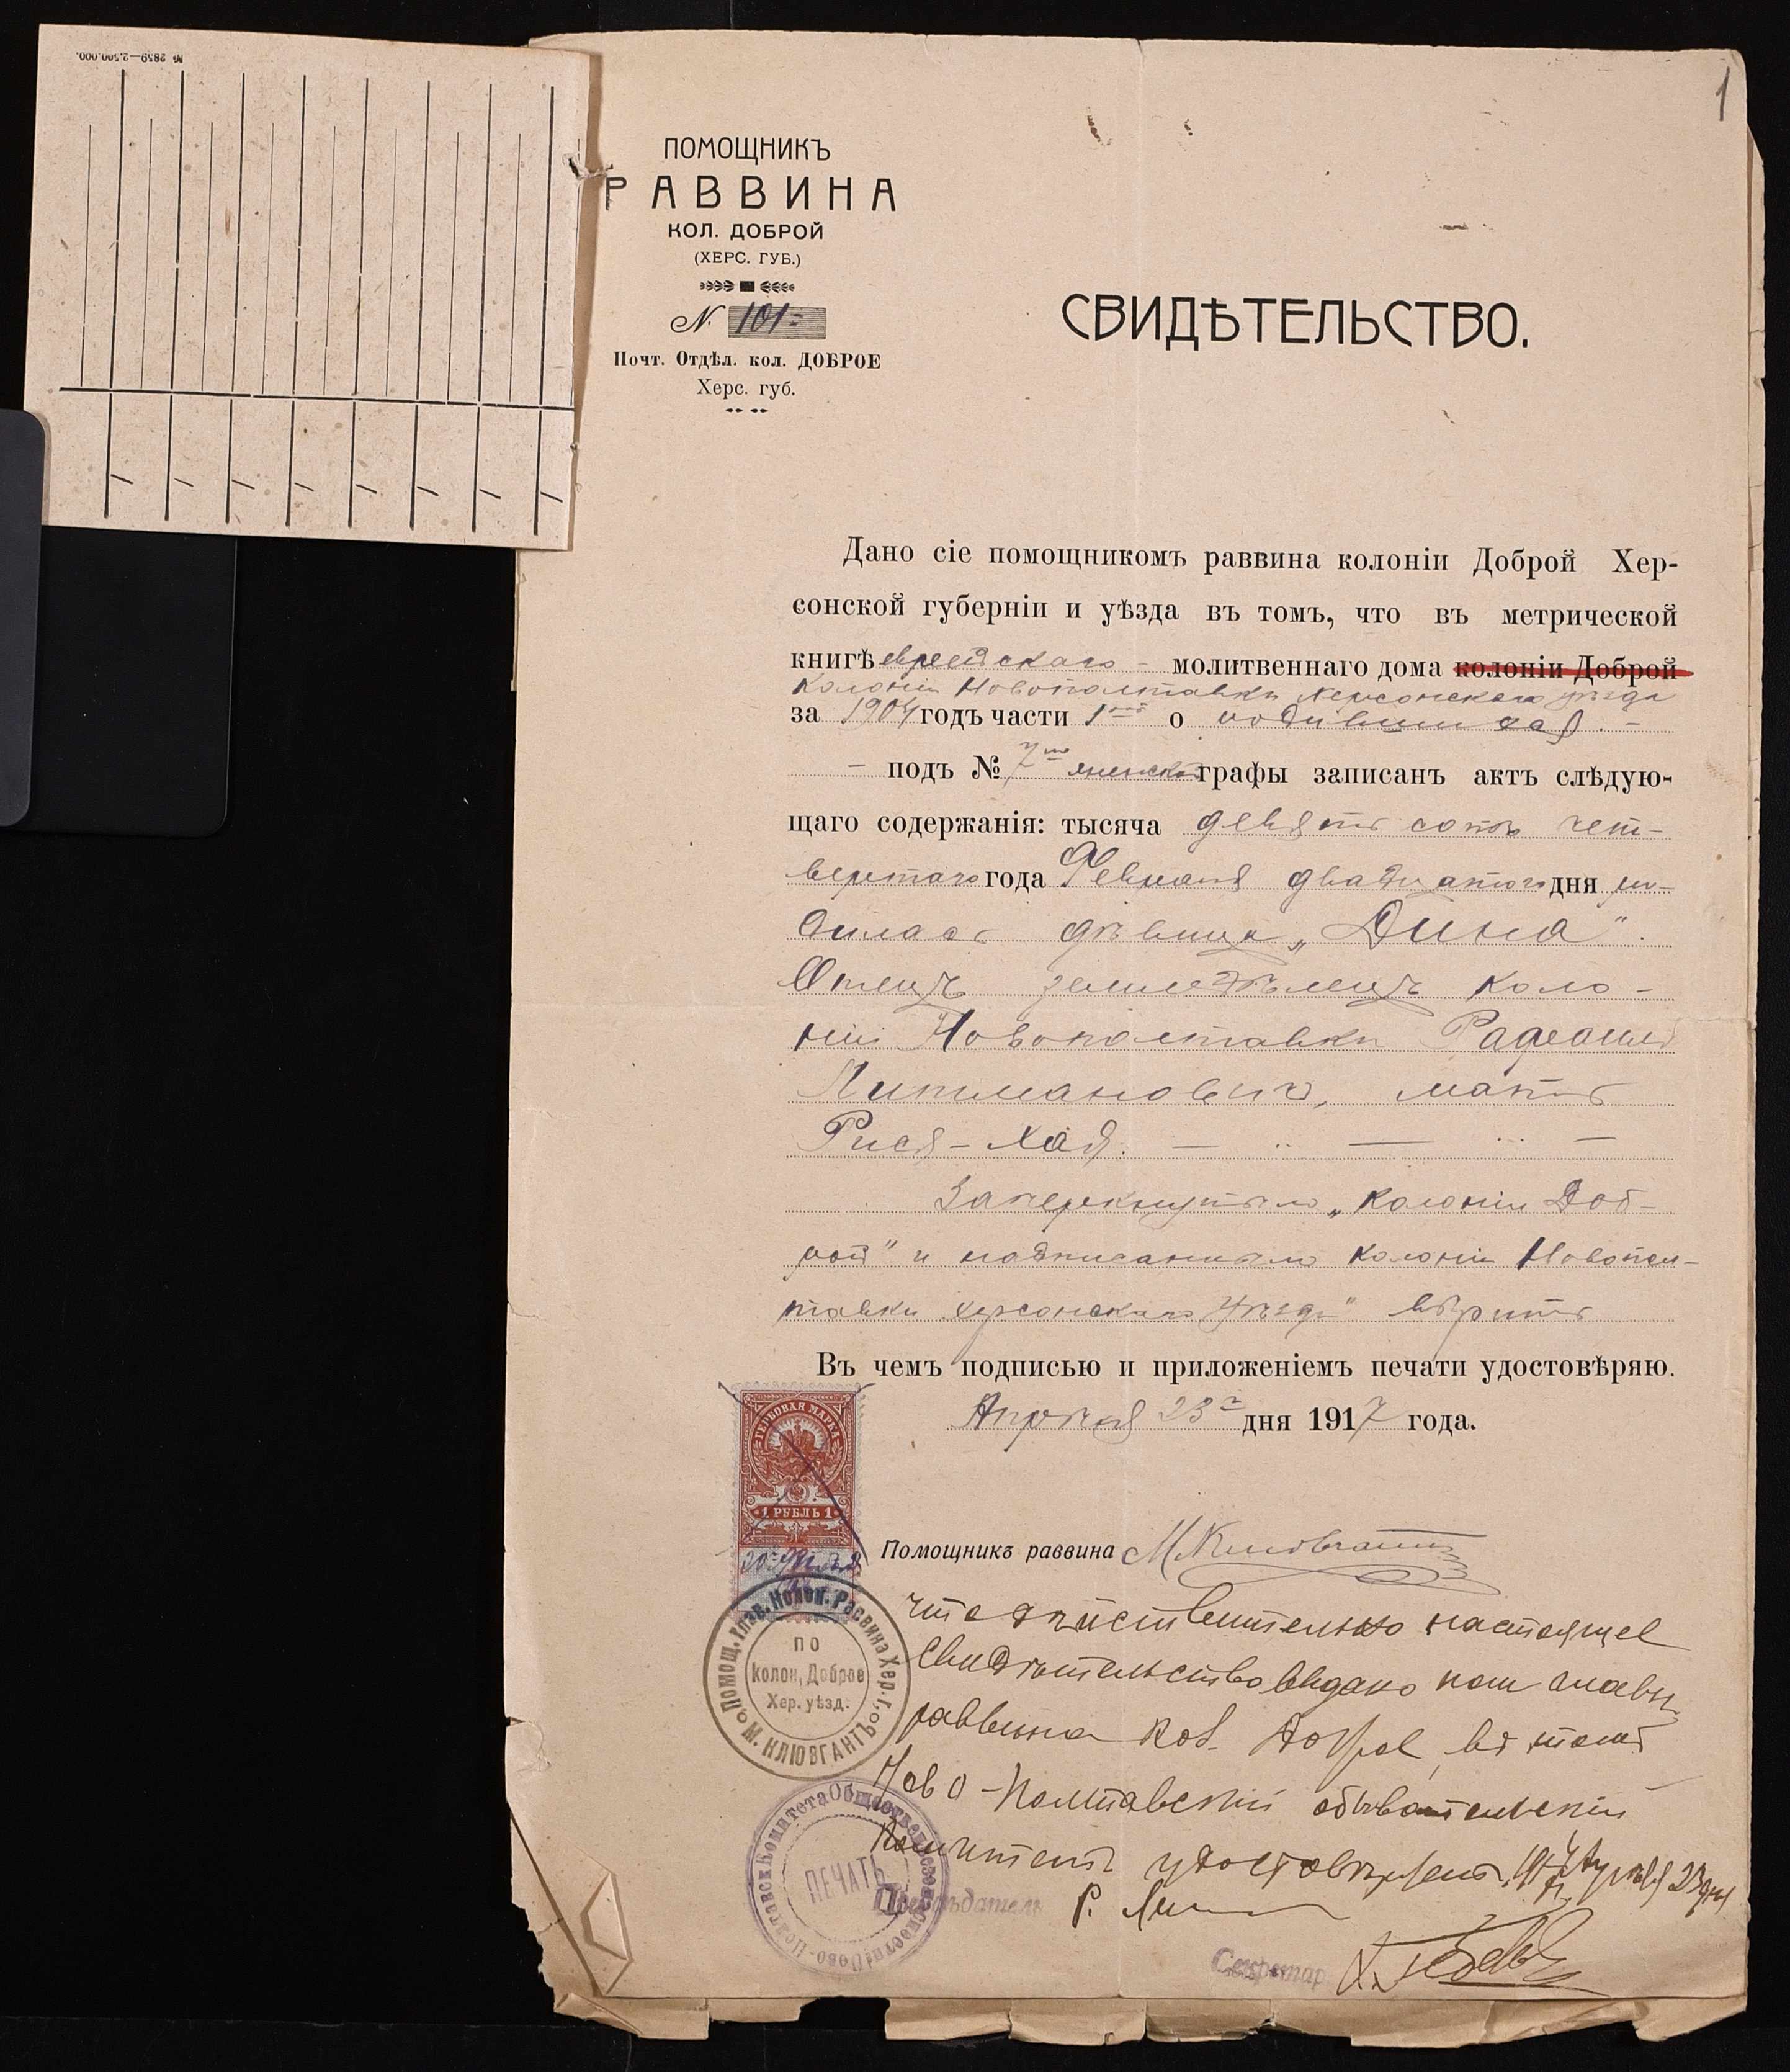 № 2859—2.500.000.
1
ПОМОЩНИКЪ
РАВВИНА
КОЛ. ДОБРОЙ
(ХЕРС. ГУБ.)
N 101=
Почт. Отдѣл. кол. ДОБРОЕ
Херс. губ.
СВИДѢТЕЛЬСТВО.
Дано сіе помощникомъ раввина колоніи Доброй Хер-
сонской губерніи и уѣзда въ томъ, что въ метрической
книгѣ еврейскаго - молитвеннаго дома колоніи Доброй
колоніи Новополтавки Херсонскаго уѣзда
за 1904 годъ части 1ой о родившихся. -
- подъ № 7мъ женской графы записанъ актъ слѣдую-
щаго содержанія: тысяча девять сотъ чет-
вертаго года Февраля двадцатого дня ро-
дилась дѣвица „Дина".
Отецъ земледѣлецъ коло-
ніи Новополтавки
Липмановичъ, мать
Рися-Хая.
Зачеркнутыго „колоніи Доб-
рой" и надписаныго колоніи Новопол-
тавки Херсонскаго уѣзда" вѣрить
Въ чемъ подписью и приложеніемъ печати удостовѣряю.
Апрѣля 23го дня 1917 года.
ГЕРБОВАЯ МАРКА
1 РУБЛЬ 1
Помощникъ раввина М. Клювгантъ
Помощ. Глав. Колон. Раввина Хер. г.
М. КЛЮВГАНТЪ
по
колон. Доброе
Хер. уѣзд.
что дѣйствительно настоящее
свидѣтельство видано пом главн
раввина кол. Доброе, въ томъ
Ново-Полтавскій обывательскій
Комитетъ удостовѣряетъ. 1917 г Апрѣля 23 дня
ПЕЧАТЬ
Предсѣдатель Р.
Секретар